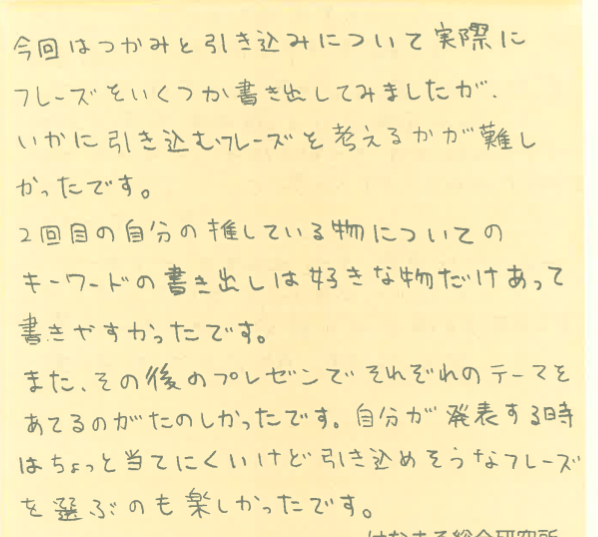 今回はつかみと引き込みについて実際に
フレーズをいくつか書き出してみましたが、
いかに引き込むフレーズを考えるかが難し
かったです。
2回目の自分の推している物についての
キーワードの書き出しは好きな物だけあって
書きやすかったです。
また、その後のプレゼンでそれぞれのテーマを
あてるのがたのしかったです。自分が発表する時
はちょっと当てにくいけど引き込めそうなフレーズ
を選ぶのも楽しかったです。
はなまる総合研究所